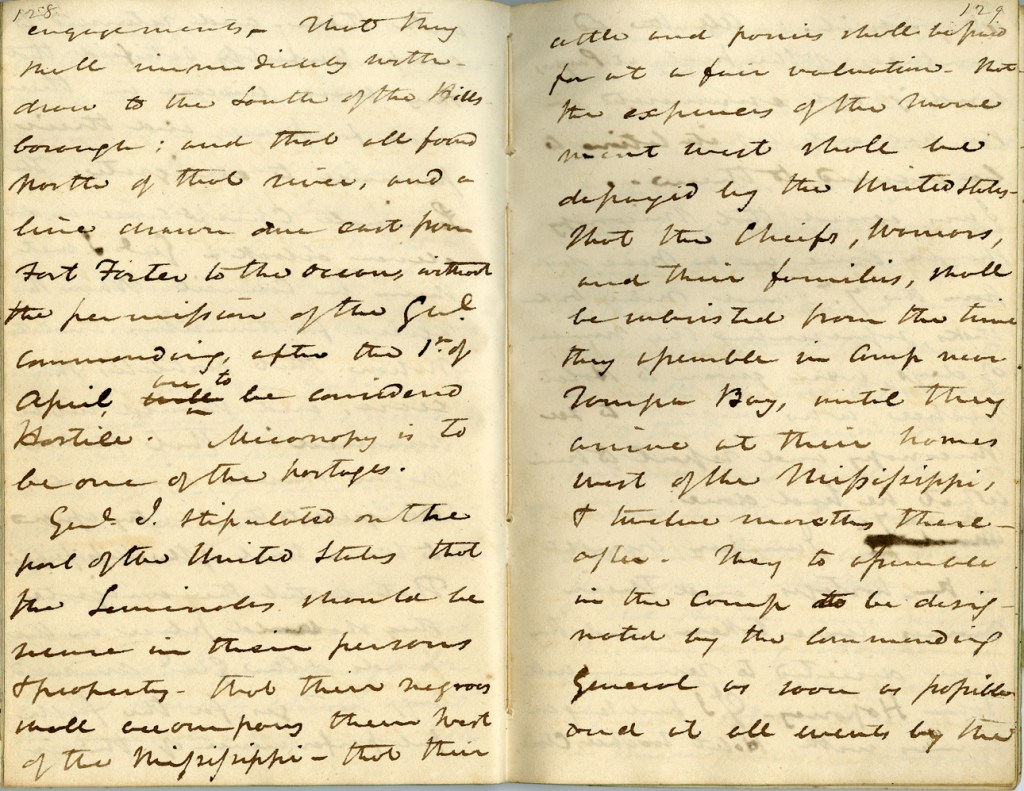 128.
engagements. That they
shall immediately with-
draw to the South of the Hills-
borough; and that all found
North of that river, and a
line drawn due east from
Fort Foster to the ocean, without
the permission of the Genl.
commanding, after the 1st of
April, are to be considered
Hostile. Miconopy is to
be one of the hostages.
Genl. J. stipulated on the
part of the United States that
the Seminoles should be
secure in their persons
& property - that their negroes
shall accompany them West
of the Mississippi - that their
129.
cattle and ponies shall be paid
for at a fair valuation. That
the expenses of the move
ment west shall be
defrayed by the United States -
That the Chiefs, Warriors,
and their families, shall
be subsisted from the time
they assemble in Camp near
Tampa Bay, until they
arrive at their homes
west of the Mississippi,
& twelve months there-
after. They to assemble
in the Camp to be desig-
nated by the Commanding
General as soon as possible
and at all events by the